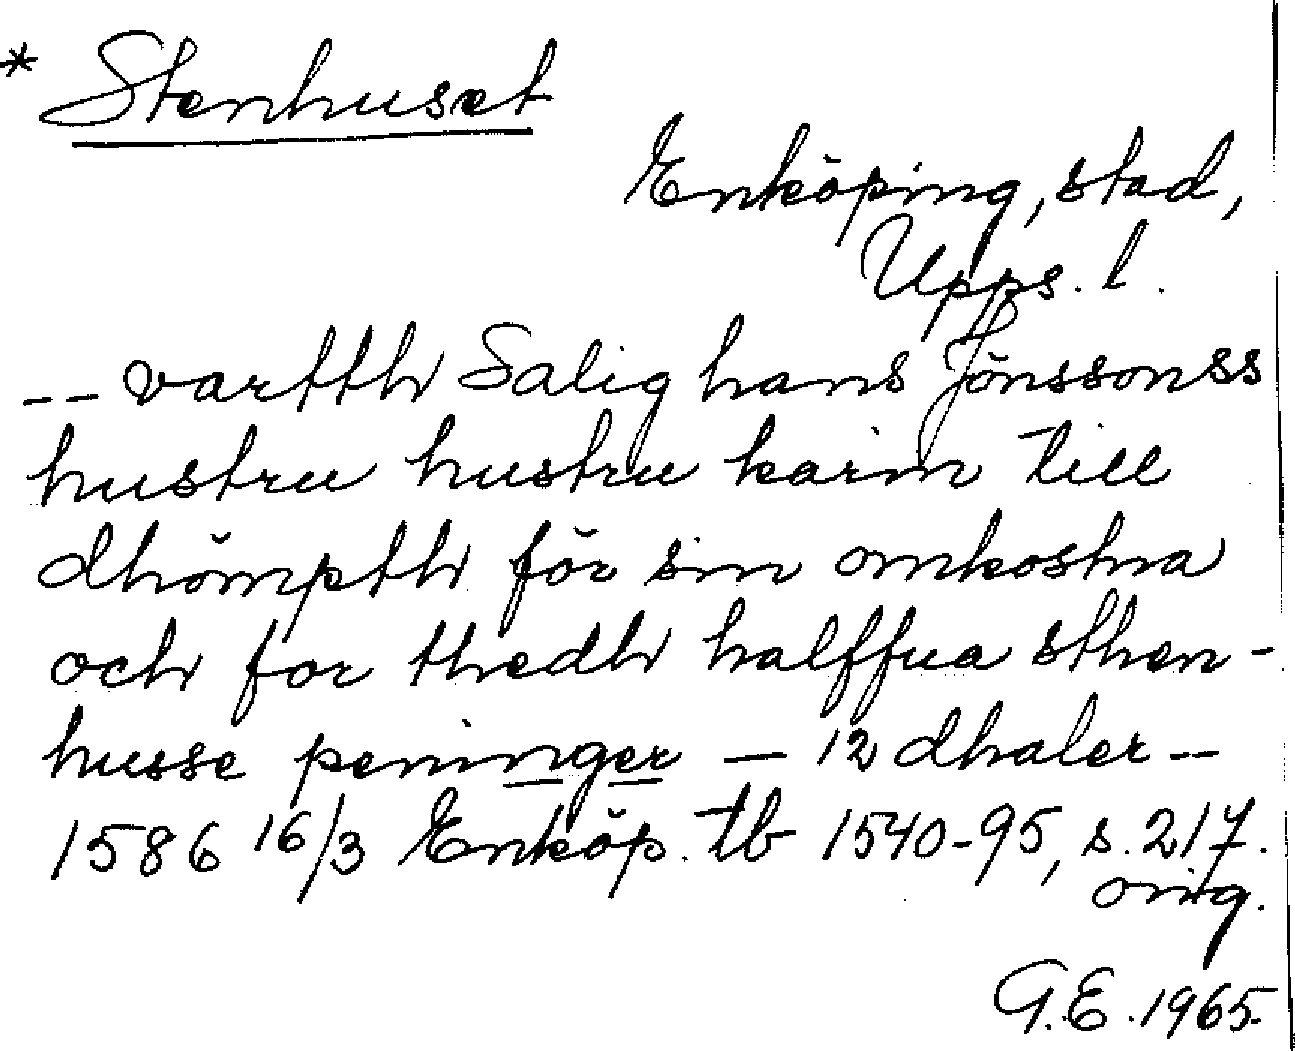 * Stenhuset
Enköping, stad,
Upps. l.
-- vartth Salig hans Jönssonss
hustru hustru karin till
dhömpth för sin omkostna
och for thedh halffua sthen-
husse peninger - 12 dhaler --
1586 16/3 Enköp. tb 1540-95, s. 217.
orig.
G.E. 1965.